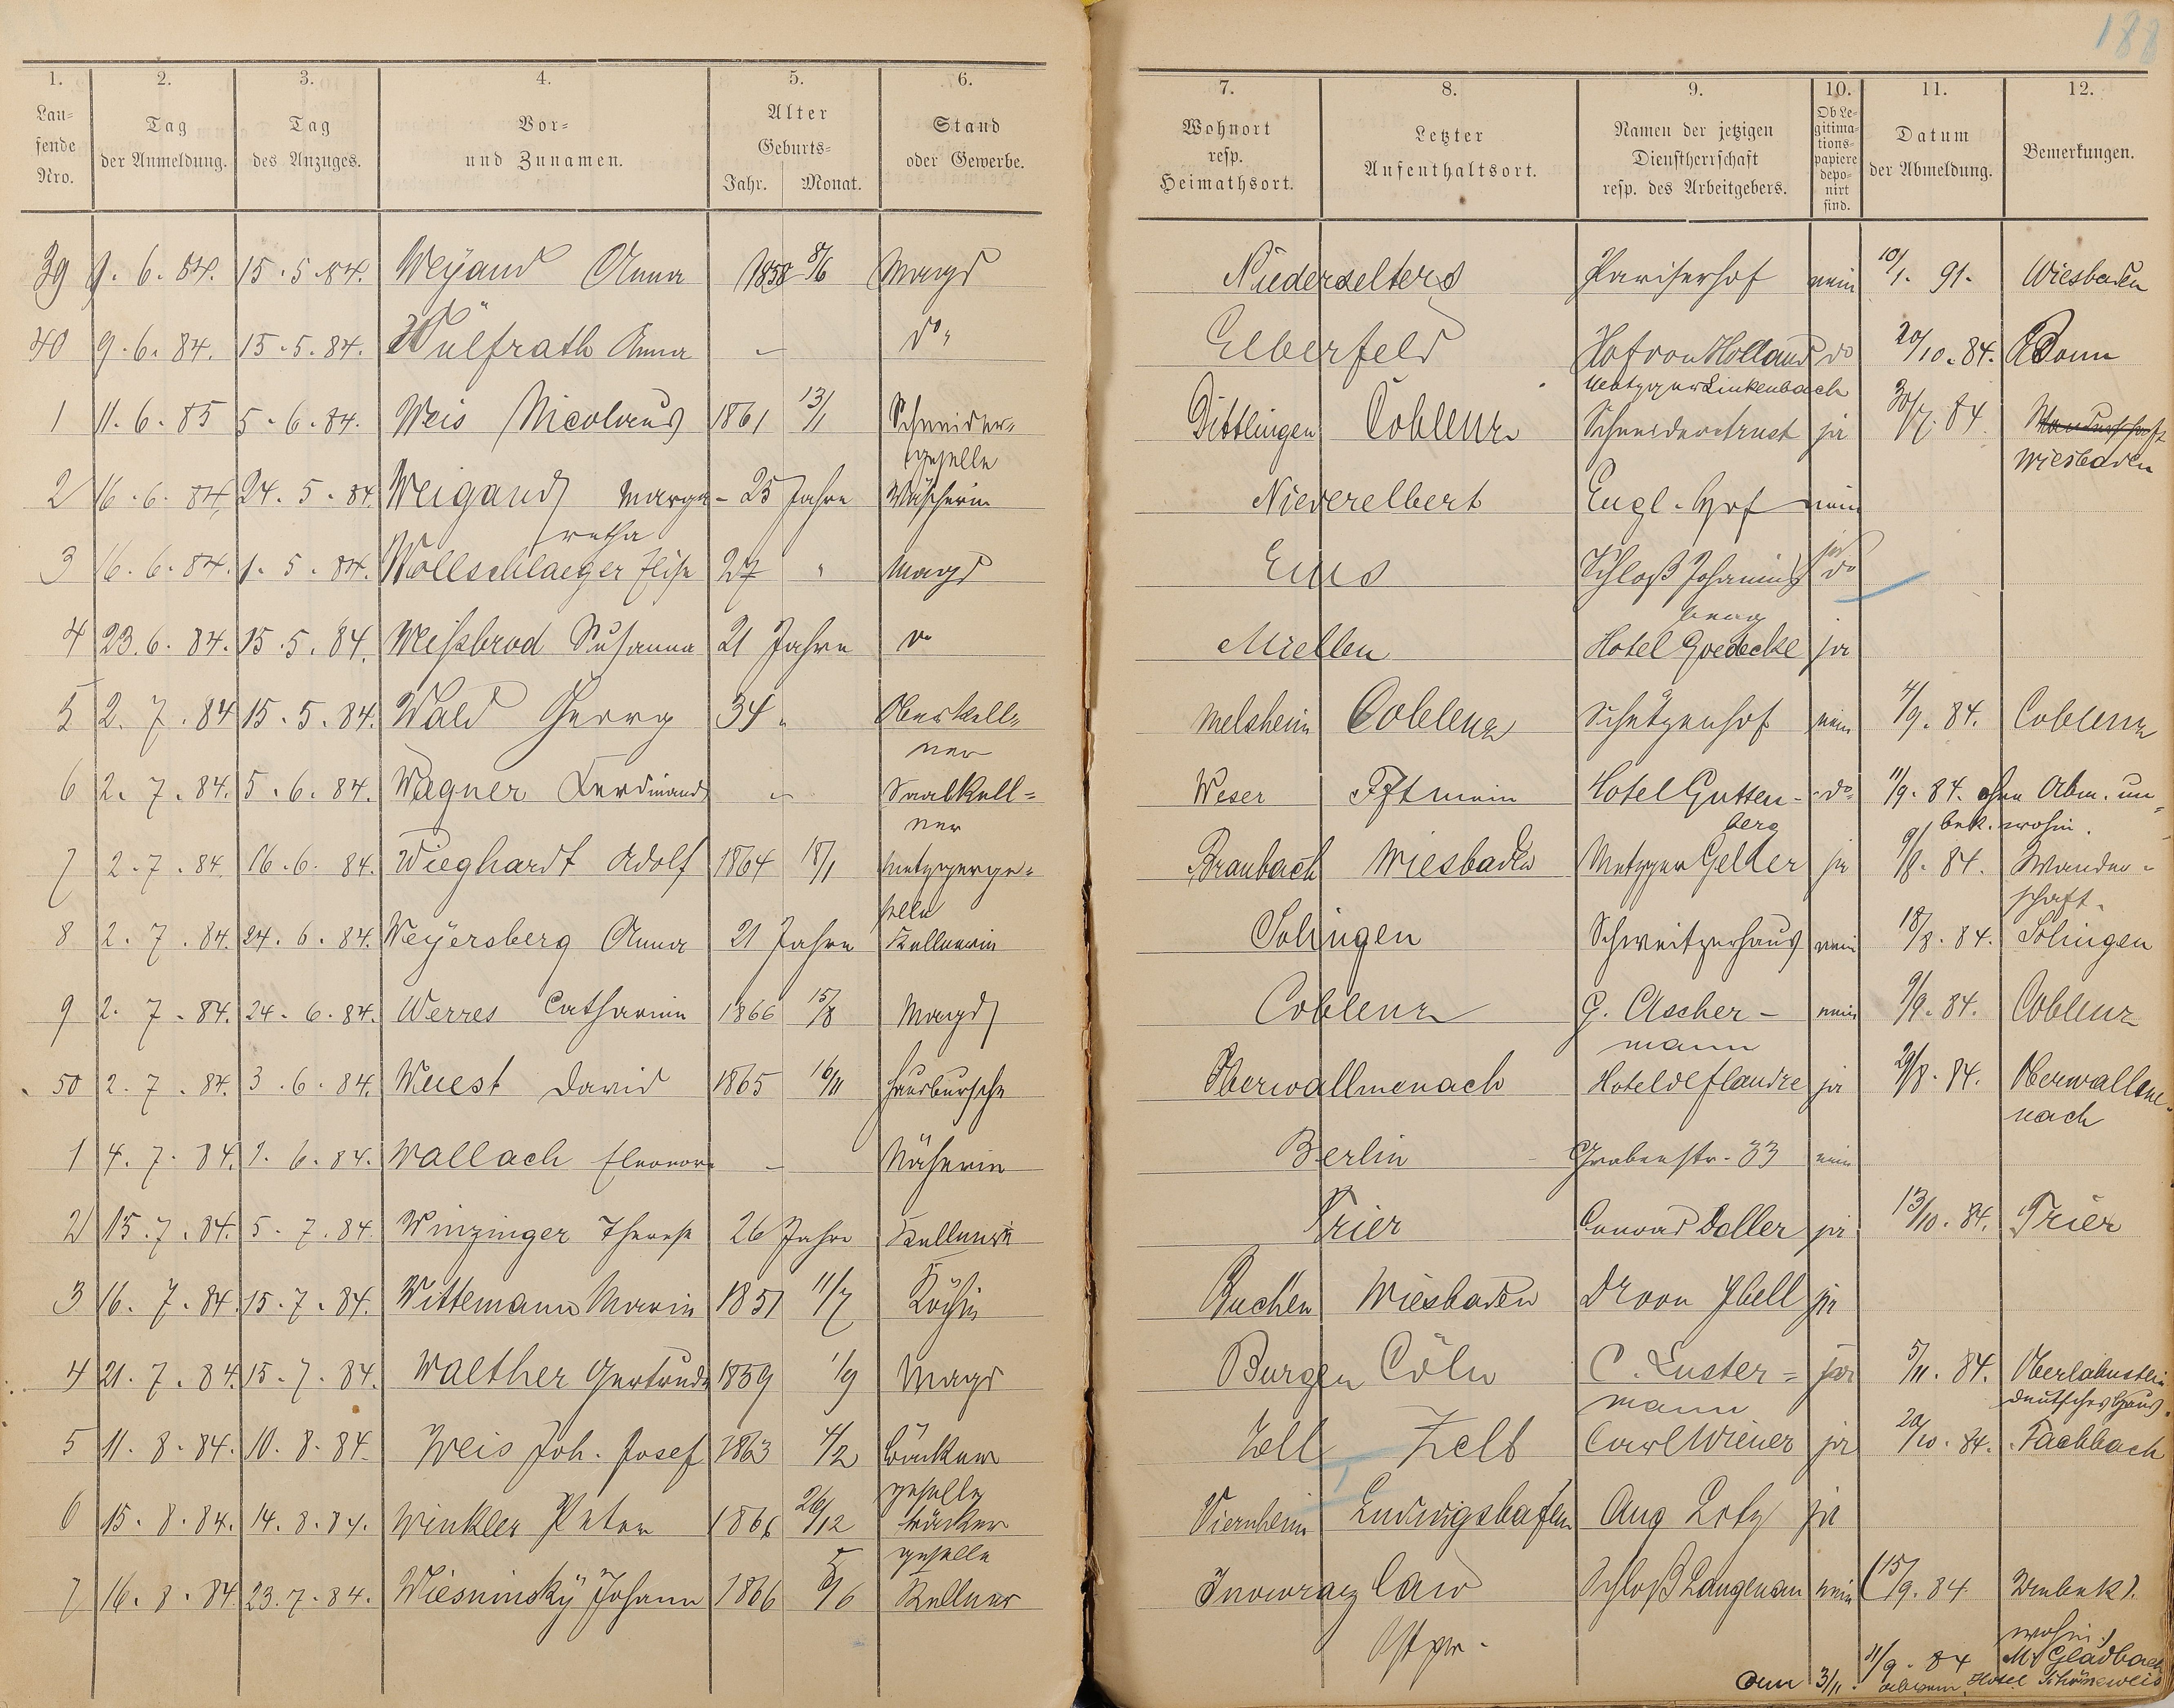 188
1. 2. 3. 4. 5. 6. 7. 8. 9. 10. 11. 12.
Lau- fende Nro. | Tag der Anmeldung. | Tag des Anzuges. | Vor- und Zunamen. | Alter Geburts- Jahr. Monat. | Stand oder Gewerbe. | Wohnort resp. Heimathsort. | Letzter Aufenthaltsort. | Namen der jetzigen Dienstherrschaft resp. des Arbeitgebers. | Ob Le- gitima- tions- papiere depo- nirt sind. | Datum der Abmeldung. | Bemerkungen.
39 9. 6. 84. 15. 5. 84. Weyand Anna 1858 8/6 Magd Niederselters Pariserhof nein 10/1. 91. Wiesbaden
40 9. 6. 84. 15. 5. 84. Wülfrath Anna — do Elberfeld Hof von Holland do 20/10. 84. Bonn
Metzger Linkenbach
1 11. 6. 85 5. 6. 84. Weis Nicolaus 1861 13/1 Schneider- Dittlingen Coblenz Schneider ja 30/7. 84
geselle Wiesbaden
2 16. 6. 84. 24. 5. 84. Weigand Marga- 25 Jahre Wäscherin Niederelbert Engl. Hof nein
retha
3 16. 6. 84. 1. 5. 84. Wollschlaeger Elise 27 " Magd Ems Schloß Johannis do ja
berg
4 23. 6. 84. 15. 5. 84. Weisbrod Susanna 21 Jahre do Miellen Hotel Goedecke ja
5 2. 7. 84 15. 5. 84. Wald Georg 34 " Oberkell- Melsheim Coblenz Schützenhof nein 4/9. 84. Coblenz
ner
6 2. 7. 84. 5. 6. 84. Wagner Ferdinand — Saalkell- Weser Fft main Hotel Gutten- do 11/9. 84. ohne Abm. un-
ner berg bek. wohin.
7 2. 7. 84 16. 6. 84. Wieghardt Adolf 1864 18/1 Metzgerge- Braubach Wiesbaden Metzger Gelher ja 9/8. 84. Wander-
selle schaft.
8 2. 7. 84. 24. 6. 84. Weyersberg Anna 21 Jahre Kellnerin Solingen Schweitzerhaus nein 18/8. 84. Solingen
9 2. 7. 84. 24. 6. 84. Werres Catharina 1866 15/8 Magd Coblenz G. Ascher- nein 9/9. 84. Coblenz
mann
50 2. 7. 84. 3. 6. 84. Wuest David 1865 16/11 Hausbursche Oberwallmenach Hotel de flandre ja 29/8. 84. Oberwallme-
nach
1 4. 7. 84. 1. 6. 84. Wallach Eleonore — Näherin Berlin Grabenstr. 33 nein
2 15. 7. 84. 5. 7. 84 Winzinger Therese 26 Jahre Kellnerin Trier Conrad Doller ja 13/10. 84. Trier
3 16. 7. 84. 15. 7. 84. Wittemann Maria 1851 11/7 Köchin Buchen Wiesbaden Dr von Ibell ja
4 21. 7. 84. 15. 7. 84. Walther Gertrude 1859 1/9 Magd Burgen Cöln C. Luster- ja 5/11. 84. Oberlahnstein
mann deutsches Haus.
5 11. 8. 84. 10. 8. 84. Weis Joh. Josef 1863 4/2 Bäcker Zell Zell Carl Wiener ja 20/10. 84. Fachbach
geselle
6 15. 8. 84. 14. 8. 84. Winkler Peter 1866 26/12 Bäcker Viernheim Ludwigshafen Aug Lotz ja
geselle
7 16. 8. 84 23. 7. 84. Wiesninsky Johann 1866 5/6 Kellner Inowrazlaw Schloß Langenau nein (15/9. 84 unbek).
Ostpr. wohin)
11/9. 84 M. Gladbach
3/11. Hotel Schöneweis